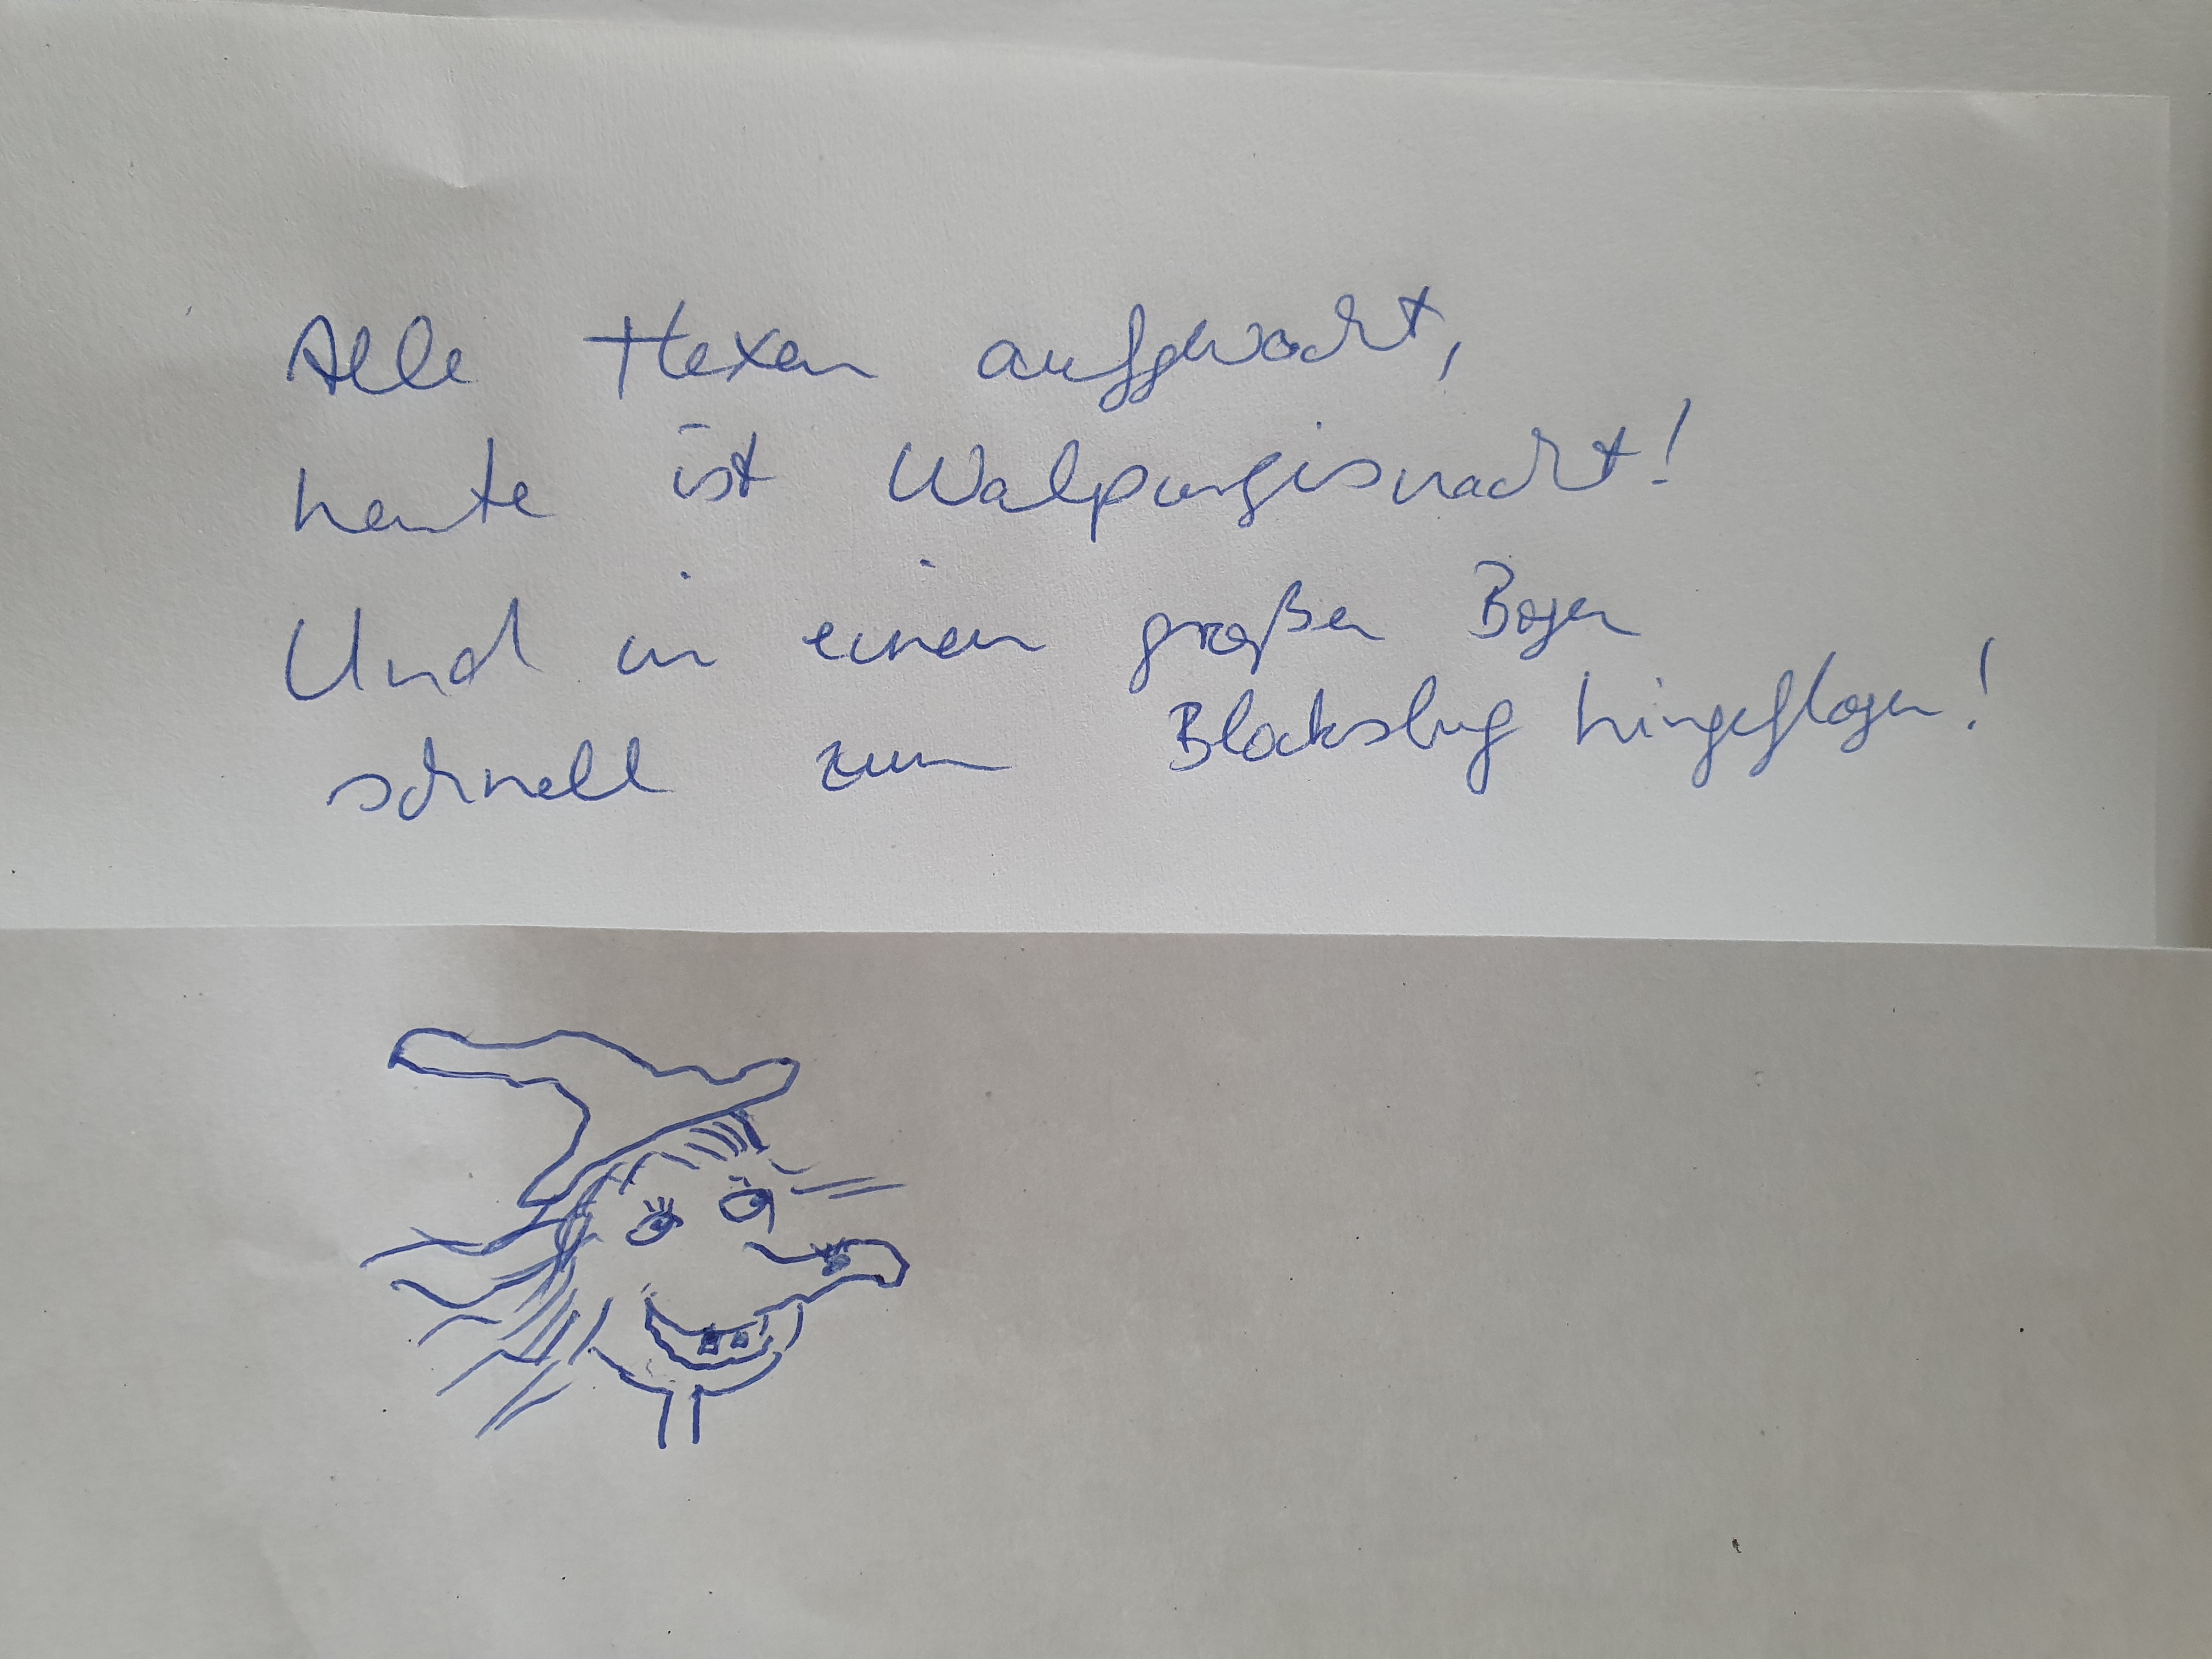 Alle Hexen aufgewacht,
heute ist Walpurgisnacht!
Und in einen großen Bogen
schnell zum Blocksberg hingeflogen!